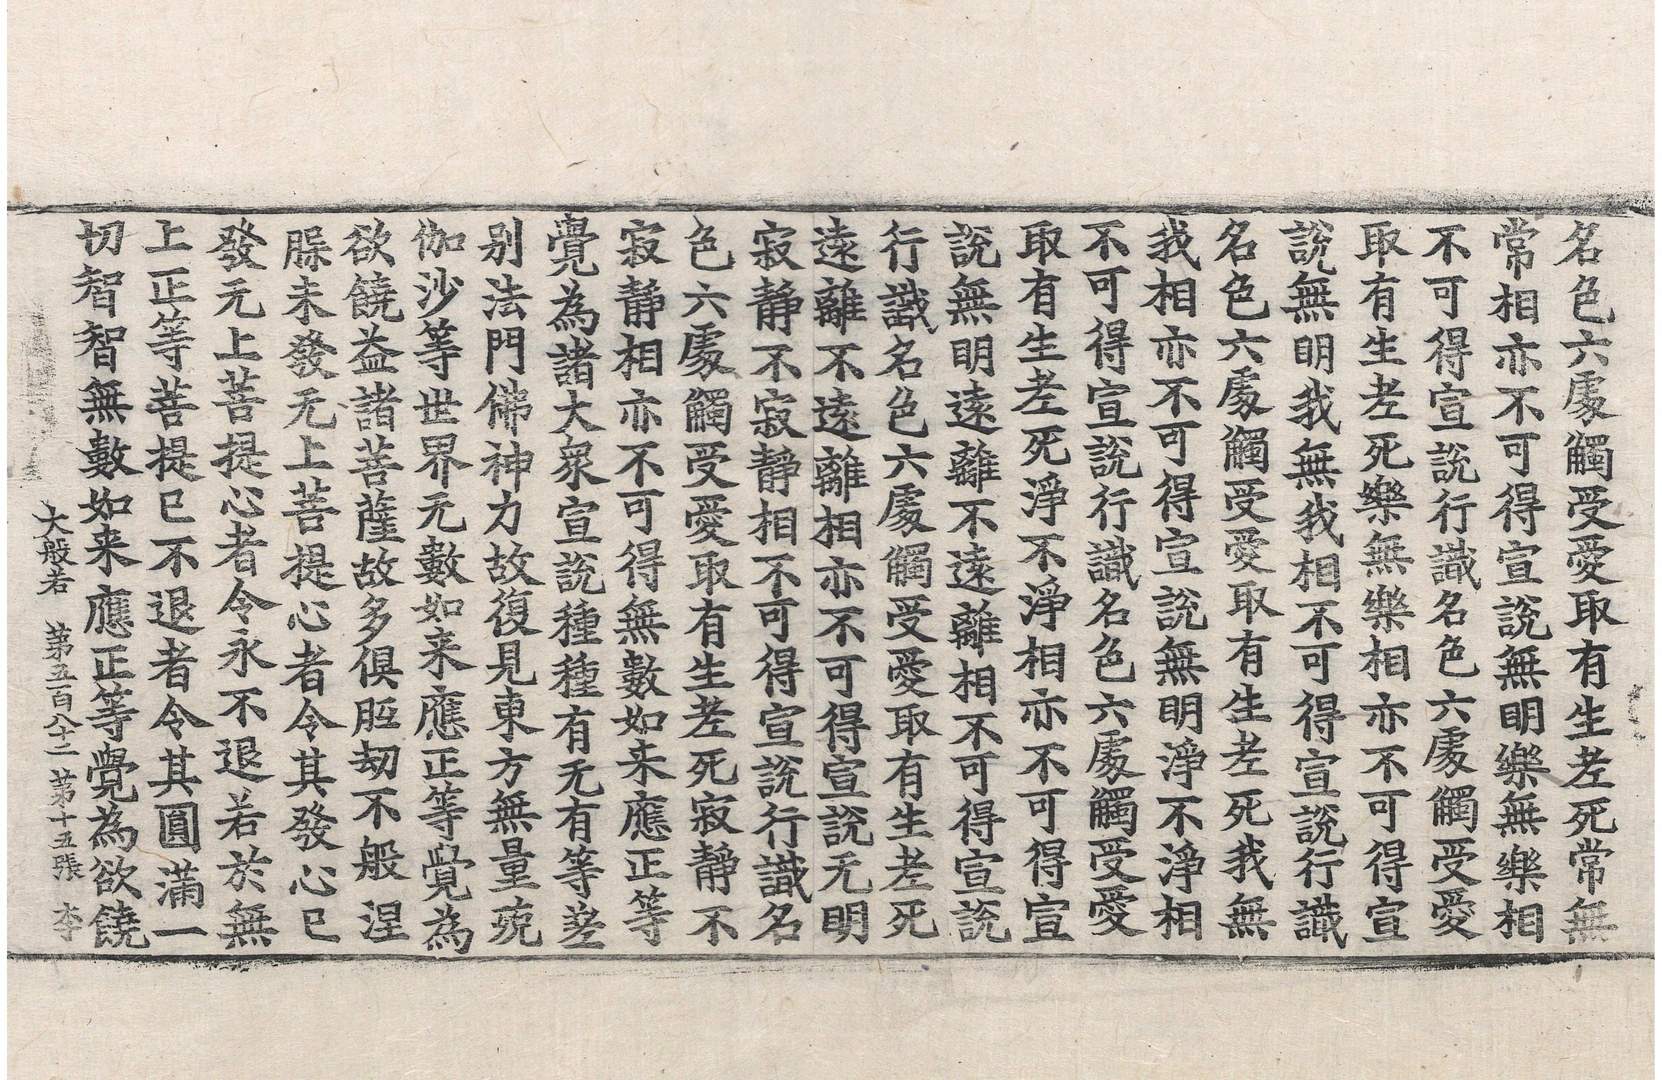 名色六處觸受愛取有生老死常無
常相亦不可得宣說無明樂無樂相
不可得宣說行識名色六處觸受愛
取有生老死樂無樂相亦不可得宣
說無明我無我相不可得宣說行識
名色六處觸受愛取有生老死我無
我相亦不可得宣說無明淨不淨相
不可得宣說行識名色六處觸受愛
取有生老死淨不淨相亦不可得宣
說無明遠離不遠離相不可得宣說
行識名色六處觸受愛取有生老死
遠離不遠離相亦不可得宣說无明
寂靜不寂靜相不可得宣說行識名
色六處觸受愛取有生老死寂靜不
寂靜相亦不可得無數如来應正等
覺為諸大衆宣說種種有无有等差
别法門佛神力故復見東方無量殑
伽沙等世界无數如来應正等覺為
欲饒益諸菩薩故多俱胝劫不般涅
槃未發无上菩提心者令其發心已
發无上菩提心者令永不退若於無
上正等菩提已不退者令其圓滿一
切智智無數如来應正等覺為欲饒
大般若 第五百八十二 第十五張 李